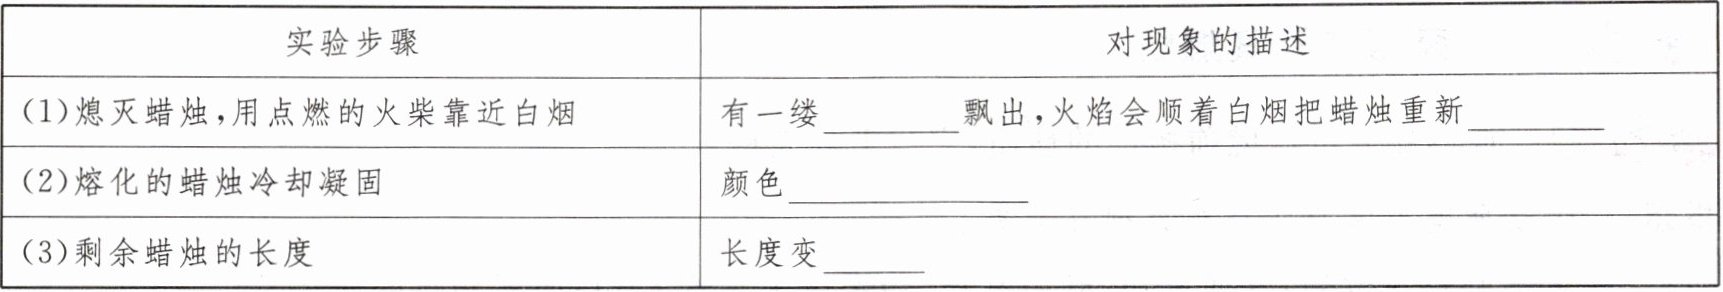 实验步骤 对现象的描述
(1)熄灭蜡烛,用点燃的火柴靠近白烟 有一缕________飘出,火焰会顺着白烟把蜡烛重新________
(2)熔化的蜡烛冷却凝固 颜色______________
(3)剩余蜡烛的长度 长度变______